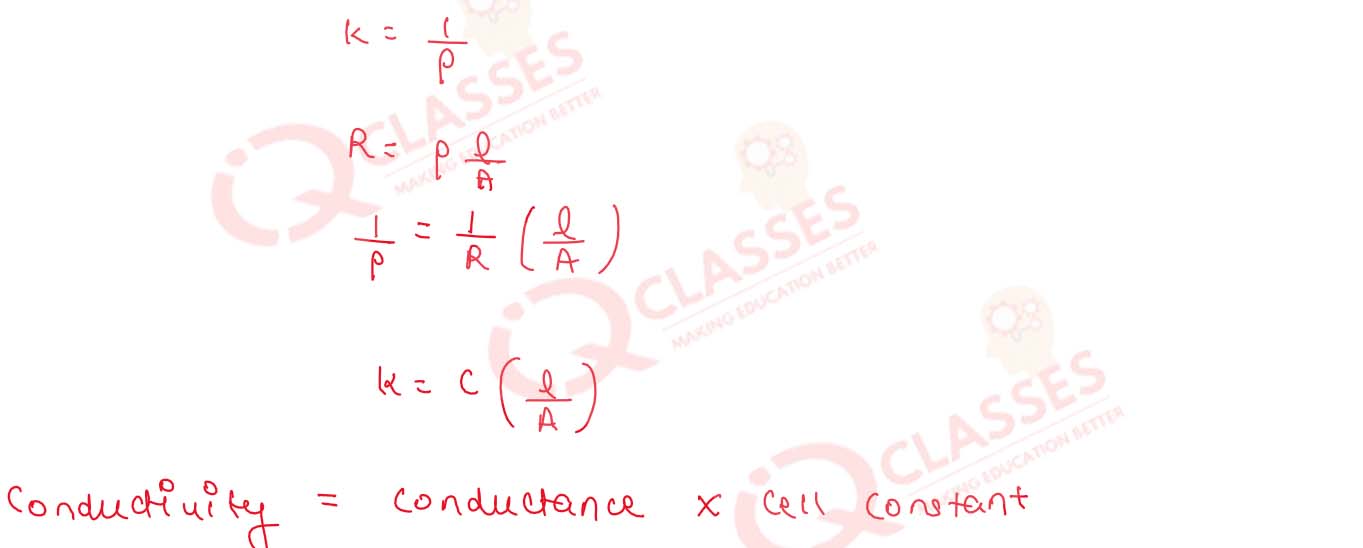 k = 1/ρ
R = ρ l/A
1/ρ = 1/R (l/A)
k = C (l/A)
Conductivity = Conductance × Cell Constant
iQ CLASSES
MAKING EDUCATION BETTER
iQ CLASSES
MAKING EDUCATION BETTER
iQ CLASSES
MAKING EDUCATION BETTER